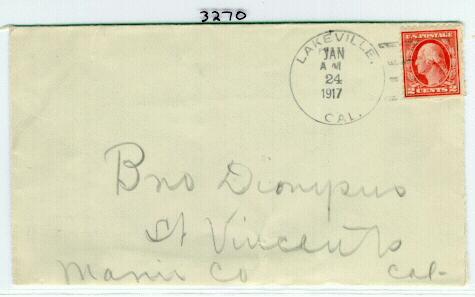 3270
LAKEVILLE,
JAN
A M
24
1917
CAL.
U.S. POSTAGE
2 CENTS 2
Bro
St Vincents
Marin Co Cal-